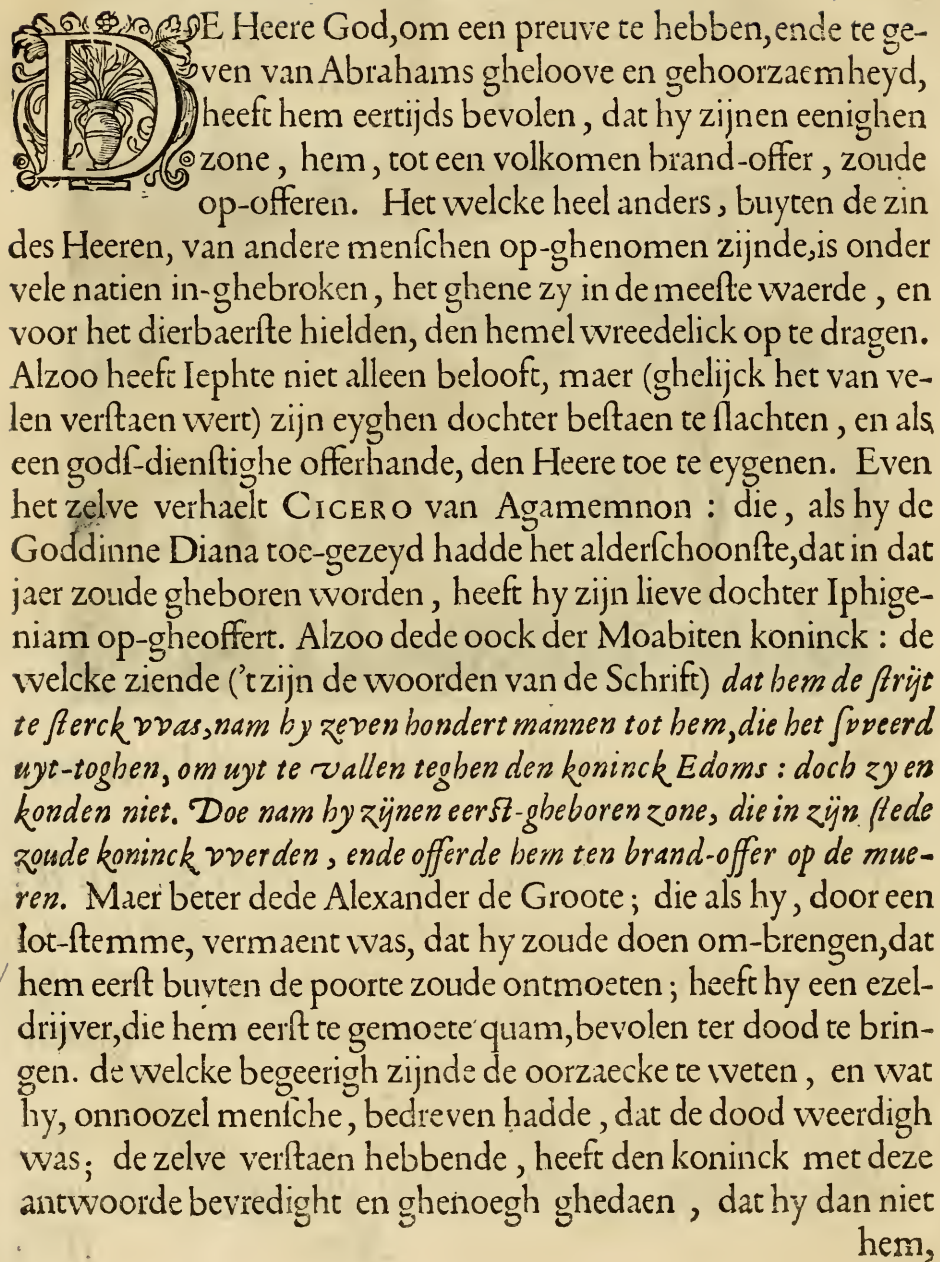 DE Heere God,om een preuve te hebben,ende te ge-
ven van Abrahams gheloove en gehoorzaemheyd,
heeft hem eertijds bevolen, dat hy zijnen eenighen
zone, hem, tot een volkomen brand-offer, zoude
op-offeren. Het welcke heel anders, buyten de zin
des Heeren, van andere menſchen op-ghenomen zijnde,is onder
vele natien in-ghebroken, het ghene zy in de meeſte waerde, en
voor het dierbaerſte hielden, den hemel wreedelick op te dragen.
Alzoo heeft Iephte niet alleen belooft, maer (ghelijck het van ve-
len verſtaen wert) zijn eyghen dochter beſtaen te ſlachten, en als
een godſ-dienſtighe offerhande, den Heere toe te eygenen. Even
het zelve verhaelt CICERO van Agamemnon : die, als hy de
Goddinne Diana toe-gezeyd hadde het alderſchoonſte,dat in dat
jaer zoude gheboren worden, heeft hy zijn lieve dochter Iphige-
niam op-gheoffert. Alzoo dede oock der Moabiten koninck : de
welcke ziende ('t zijn de woorden van de Schrift) dat hem de ſtrijt
te ſterck vvas,nam hy zeven hondert mannen tot hem,die het ſvveerd
uyt-toghen, om uyt te vallen teghen den koninck Edoms : doch zy en
konden niet. Doe nam hy zijnen eerſt-gheboren zone, die in zijn ſtede
zoude koninck vverden, ende offerde hem ten brand-offer op de mue-
ren. Maer beter dede Alexander de Groote; die als hy, door een
lot-ſtemme, vermaent was, dat hy zoude doen om-brengen,dat
hem eerſt buyten de poorte zoude ontmoeten; heeft hy een ezel-
drijver,die hem eerſt te gemoete quam,bevolen ter dood te brin-
gen. de welcke begeerigh zijnde de oorzaecke te weten, en wat
hy, onnoozel menſche, bedreven hadde, dat de dood weerdigh
was; de zelve verſtaen hebbende, heeft den koninck met deze
antwoorde bevredight en ghenoegh ghedaen, dat hy dan niet
hem,